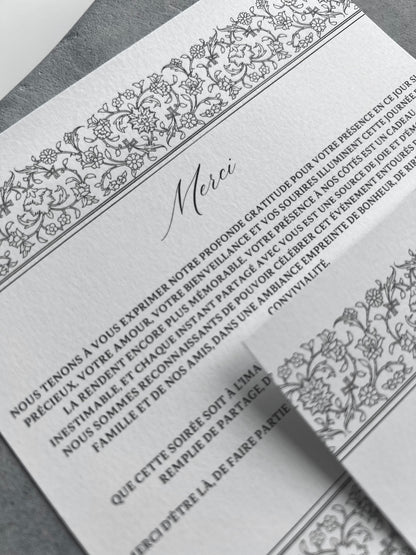 Merci
NOUS TENONS À VOUS EXPRIMER NOTRE PROFONDE GRATITUDE POUR VOTRE PRÉSENCE EN CE JOUR
PRÉCIEUX. VOTRE AMOUR, VOTRE BIENVEILLANCE ET VOS SOURIRES ILLUMINENT CETTE JOURNÉE
LA RENDENT ENCORE PLUS MÉMORABLE. VOTRE PRÉSENCE À NOS CÔTÉS EST UN CADEAU
INESTIMABLE, ET CHAQUE INSTANT PARTAGÉ AVEC VOUS EST UNE SOURCE DE JOIE ET
NOUS SOMMES RECONNAISSANTS DE POUVOIR CÉLÉBRER CET ÉVÉNEMENT ENTOURÉS
FAMILLE ET DE NOS AMIS, DANS UNE AMBIANCE EMPREINTE DE BONHEUR, DE
CONVIVIALITÉ.
QUE CETTE SOIRÉE SOIT À
REMPLIE DE PARTAGE
D'ÊTRE LÀ, DE FAIRE PARTIE